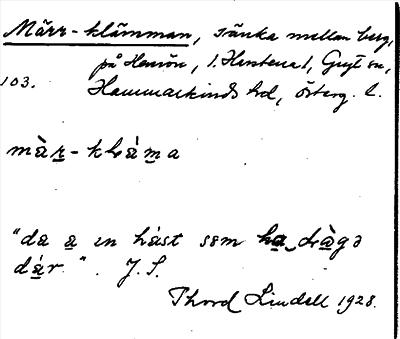 Märr-klämman, sänka mellan berg,
på Herrön, 1. Herstena 1, Gryt sn,
103. Hammarkinds hd, Österg. l.
mà̀r-klàma
"da a en häst som ha dràgə
där". J. S.
Thord Lindell 1928.